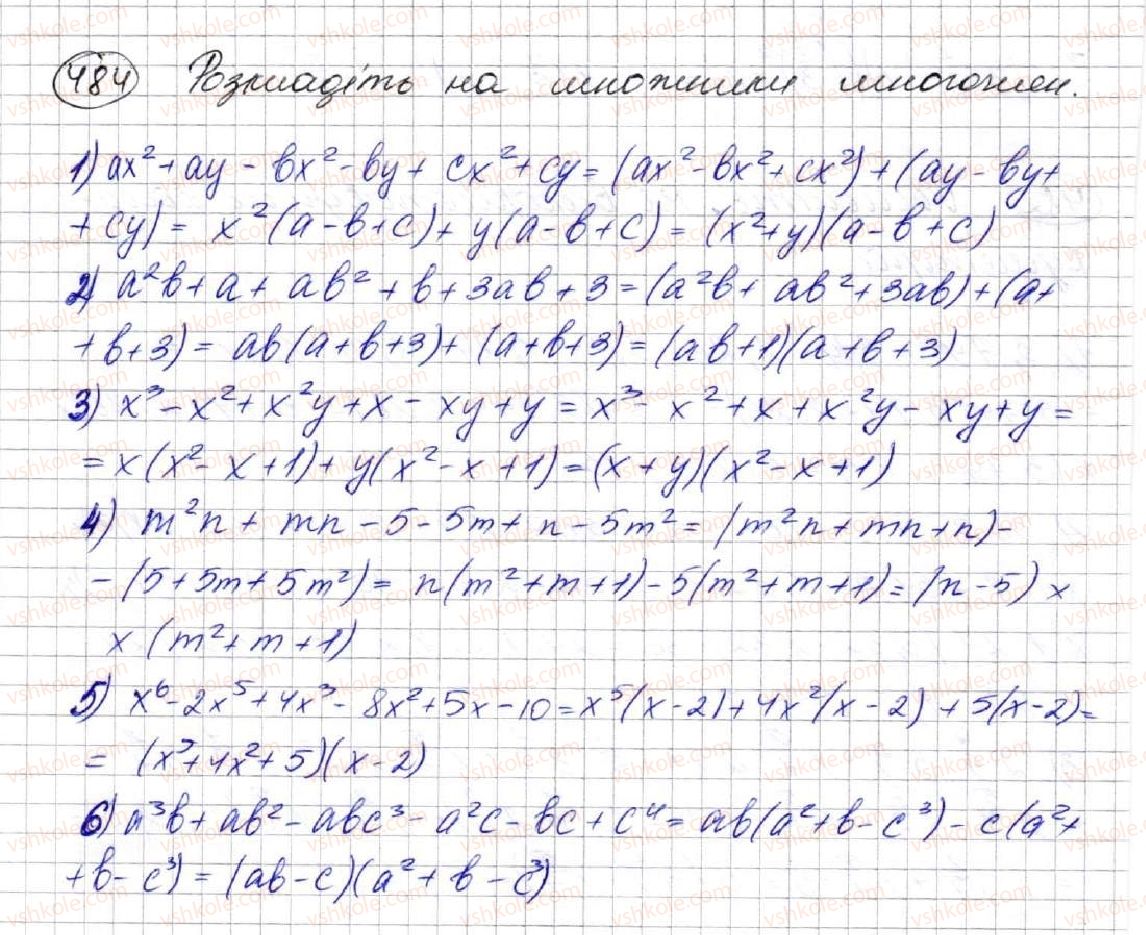 484 Розкладіть на множники многочлен.
1) ax² + ay - bx² - by + cx² + cy = (ax² - bx² + cx²) + (ay - by +
+ cy) = x²(a - b + c) + y(a - b + c) = (x² + y)(a - b + c)
2) a²b + a + ab² + b + 3ab + 3 = (a²b + ab² + 3ab) + (a +
+ b + 3) = ab(a + b + 3) + (a + b + 3) = (ab + 1)(a + b + 3)
3) x³ - x² + x²y + x - xy + y = x³ - x² + x + x²y - xy + y =
= x(x² - x + 1) + y(x² - x + 1) = (x + y)(x² - x + 1)
4) m²n + mn - 5 - 5m + n - 5m² = (m²n + mn + n) -
- (5 + 5m + 5m²) = n(m² + m + 1) - 5(m² + m + 1) = (n - 5) ×
× (m² + m + 1)
5) x⁶ - 2x⁵ + 4x³ - 8x² + 5x - 10 = x⁵(x - 2) + 4x²(x - 2) + 5(x - 2) =
= (x⁵ + 4x² + 5)(x - 2)
6) a³b + ab² - abc³ - a²c - bc + c⁴ = ab(a² + b - c³) - c(a² +
+ b - c³) = (ab - c)(a² + b - c³)